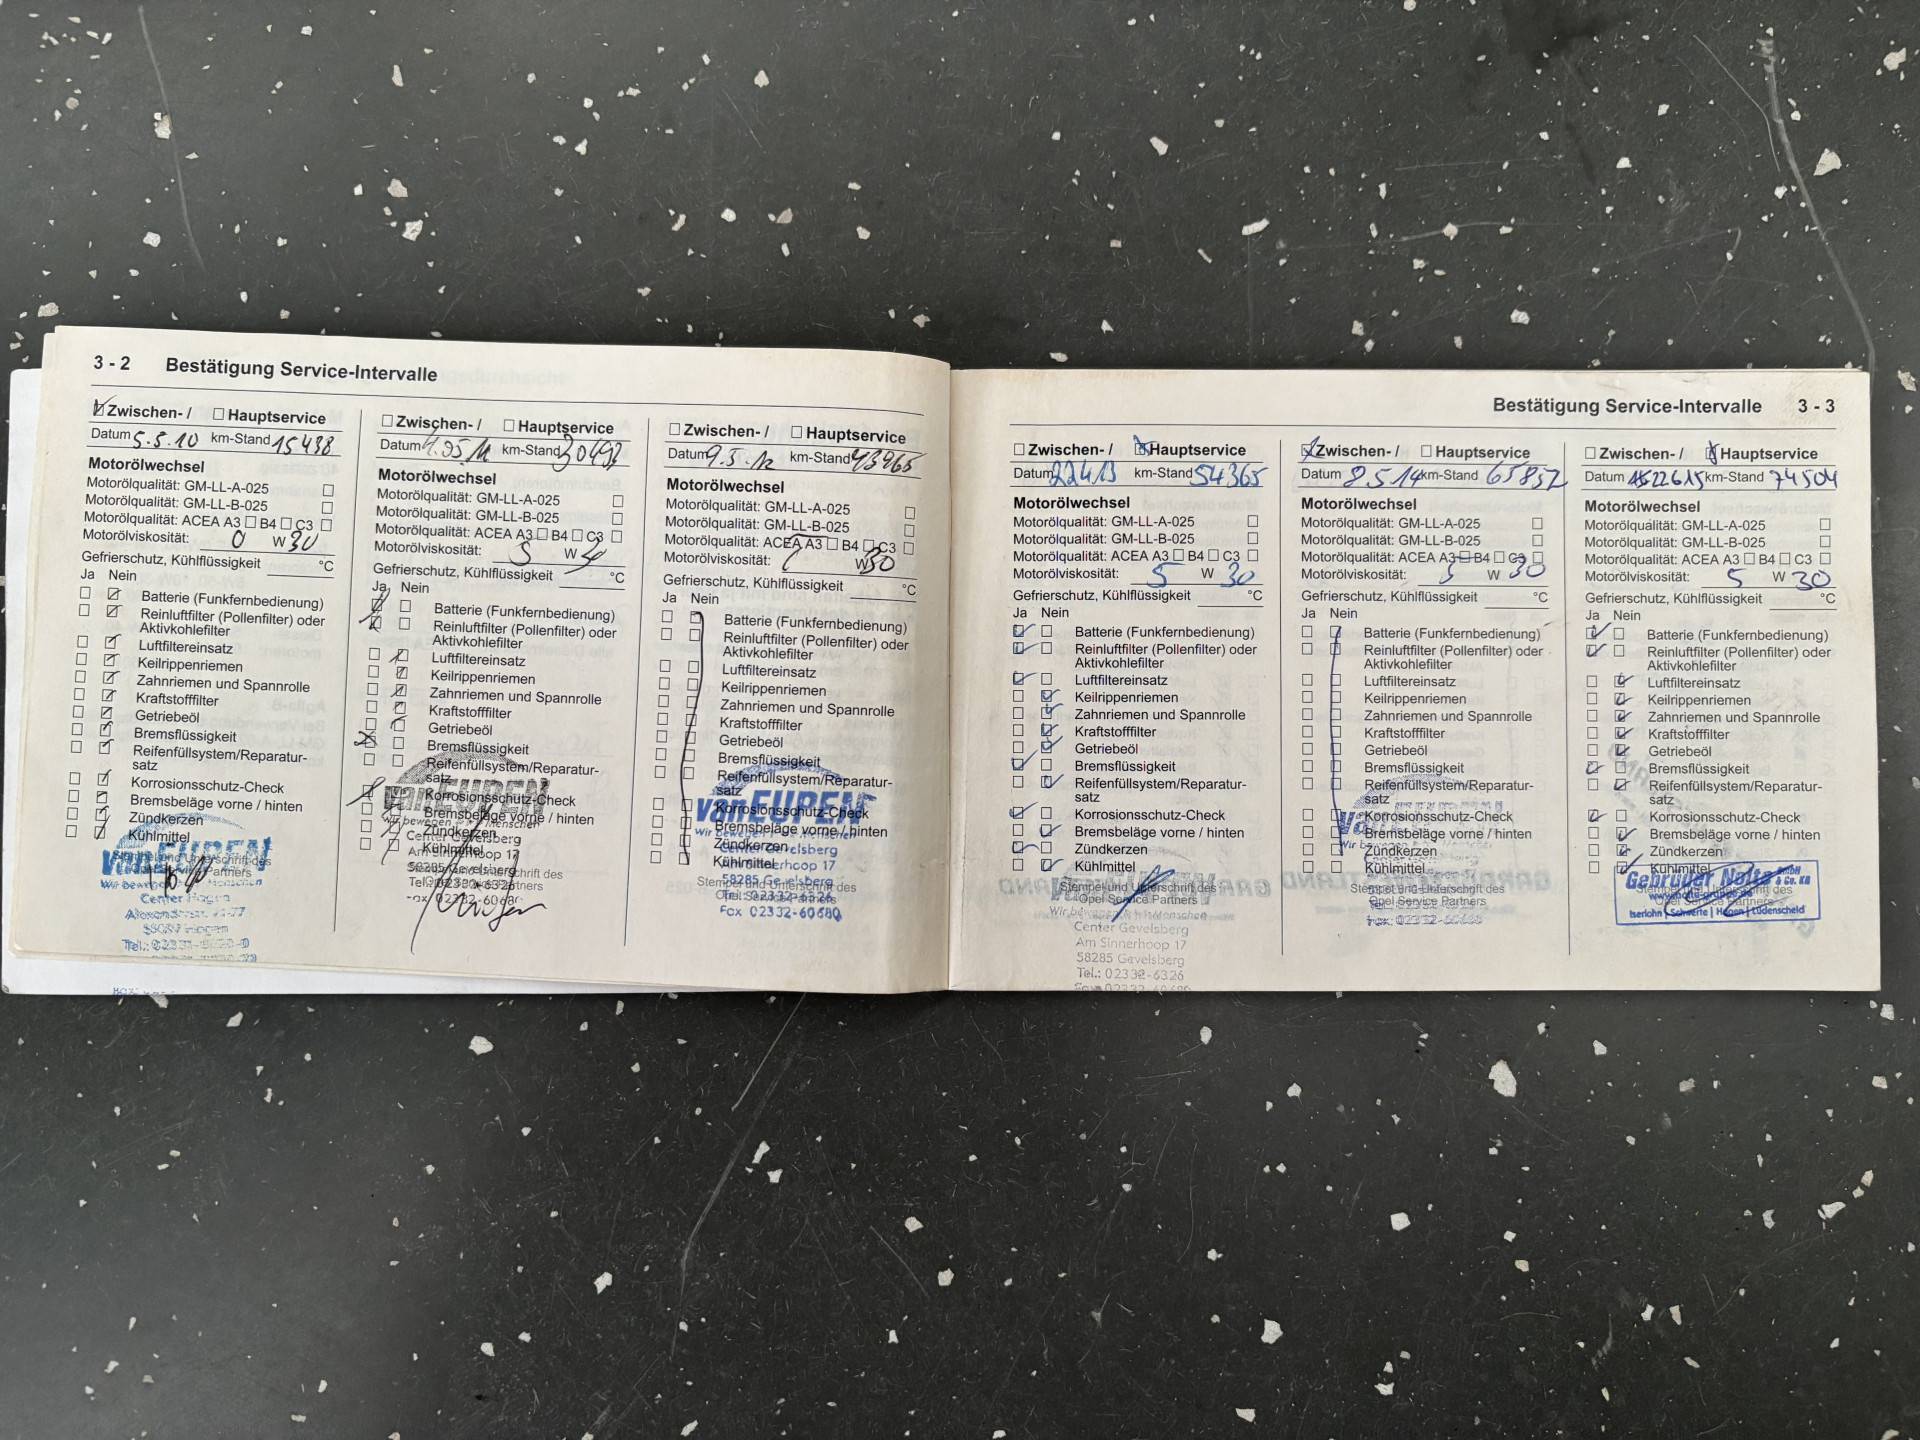 3 - 2 Bestätigung Service-Intervalle
Zwischen- / Hauptservice
Datum 5.5.10 km-Stand 15438
Motorölwechsel
Motorölqualität: GM-LL-A-025
Motorölqualität: GM-LL-B-025
Motorölqualität: ACEA A3 B4 C3
Motorölviskosität: 0 W 30
Gefrierschutz, Kühlflüssigkeit °C
Ja Nein
Batterie (Funkfernbedienung)
Reinluftfilter (Pollenfilter) oder
Aktivkohlefilter
Luftfiltereinsatz
Keilrippenriemen
Zahnriemen und Spannrolle
Kraftstofffilter
Getriebeöl
Bremsflüssigkeit
Reifenfüllsystem/Reparatur-
satz
Korrosionsschutz-Check
Bremsbeläge vorne / hinten
Zündkerzen
Kühlmittel
van EUPEN
Stempel und Unterschrift des
Wir bewegen Menschen
Center Hagen
Zwischen- / Hauptservice
Datum km-Stand 30493
Motorölwechsel
Motorölqualität: GM-LL-A-025
Motorölqualität: GM-LL-B-025
Motorölqualität: ACEA A3 B4 C3
Motorölviskosität: 5 W 30
Gefrierschutz, Kühlflüssigkeit °C
Ja Nein
Batterie (Funkfernbedienung)
Reinluftfilter (Pollenfilter) oder
Aktivkohlefilter
Luftfiltereinsatz
Keilrippenriemen
Zahnriemen und Spannrolle
Kraftstofffilter
Getriebeöl
Bremsflüssigkeit
Reifenfüllsystem/Reparatur-
satz
van EUPEN
Korrosionsschutz-Check
Bremsbeläge vorne / hinten
Wir bewegen Menschen
Zündkerzen
Center Gevelsberg
Kühlmittel
Am Sinnerhoop 17
58285 Gevelsberg
Tel.: 02332-6326
Fax 02332-60680
Zwischen- / Hauptservice
Datum 9.5.12 km-Stand 43965
Motorölwechsel
Motorölqualität: GM-LL-A-025
Motorölqualität: GM-LL-B-025
Motorölqualität: ACEA A3 B4 C3
Motorölviskosität: W 30
Gefrierschutz, Kühlflüssigkeit °C
Ja Nein
Batterie (Funkfernbedienung)
Reinluftfilter (Pollenfilter) oder
Aktivkohlefilter
Luftfiltereinsatz
Keilrippenriemen
Zahnriemen und Spannrolle
Kraftstofffilter
Getriebeöl
Bremsflüssigkeit
Reifenfüllsystem/Reparatur-
satz
van EUPEN
Korrosionsschutz-Check
Bremsbeläge vorne / hinten
Wir bewegen Menschen
Zündkerzen
Center Gevelsberg
Kühlmittel
Am Sinnerhoop 17
58285 Gevelsberg
Stempel und Unterschrift des
Tel.: 02332-6326
Opel Service Partners
Fax 02332-60680
Bestätigung Service-Intervalle 3 - 3
Zwischen- / Hauptservice
Datum 22413 km-Stand 54365
Motorölwechsel
Motorölqualität: GM-LL-A-025
Motorölqualität: GM-LL-B-025
Motorölqualität: ACEA A3 B4 C3
Motorölviskosität: 5 W 30
Gefrierschutz, Kühlflüssigkeit °C
Ja Nein
Batterie (Funkfernbedienung)
Reinluftfilter (Pollenfilter) oder
Aktivkohlefilter
Luftfiltereinsatz
Keilrippenriemen
Zahnriemen und Spannrolle
Kraftstofffilter
Getriebeöl
Bremsflüssigkeit
Reifenfüllsystem/Reparatur-
satz
Korrosionsschutz-Check
Bremsbeläge vorne / hinten
Zündkerzen
Kühlmittel
Stempel und Unterschrift des
Opel Service Partners
Wir bewegen Menschen
Center Gevelsberg
Am Sinnerhoop 17
58285 Gevelsberg
Tel.: 02332-6326
Fax 02332-60680
Zwischen- / Hauptservice
Datum 8.5.14 km-Stand 65852
Motorölwechsel
Motorölqualität: GM-LL-A-025
Motorölqualität: GM-LL-B-025
Motorölqualität: ACEA A3 B4 C3
Motorölviskosität: 5 W 30
Gefrierschutz, Kühlflüssigkeit °C
Ja Nein
Batterie (Funkfernbedienung)
Reinluftfilter (Pollenfilter) oder
Aktivkohlefilter
Luftfiltereinsatz
Keilrippenriemen
Zahnriemen und Spannrolle
Kraftstofffilter
Getriebeöl
Bremsflüssigkeit
Reifenfüllsystem/Reparatur-
satz
Korrosionsschutz-Check
Bremsbeläge vorne / hinten
Zündkerzen
Kühlmittel
Stempel und Unterschrift des
Opel Service Partners
Fax: 02332-60680
Zwischen- / Hauptservice
Datum 22615 km-Stand 74504
Motorölwechsel
Motorölqualität: GM-LL-A-025
Motorölqualität: GM-LL-B-025
Motorölqualität: ACEA A3 B4 C3
Motorölviskosität: 5 W 30
Gefrierschutz, Kühlflüssigkeit °C
Ja Nein
Batterie (Funkfernbedienung)
Reinluftfilter (Pollenfilter) oder
Aktivkohlefilter
Luftfiltereinsatz
Keilrippenriemen
Zahnriemen und Spannrolle
Kraftstofffilter
Getriebeöl
Bremsflüssigkeit
Reifenfüllsystem/Reparatur-
satz
Korrosionsschutz-Check
Bremsbeläge vorne / hinten
Zündkerzen
Kühlmittel
Gebrüder Nolte GmbH & Co. KG
Stempel und Unterschrift des
Opel Service Partners
Iserlohn | Schwerte | Hagen | Lüdenscheid